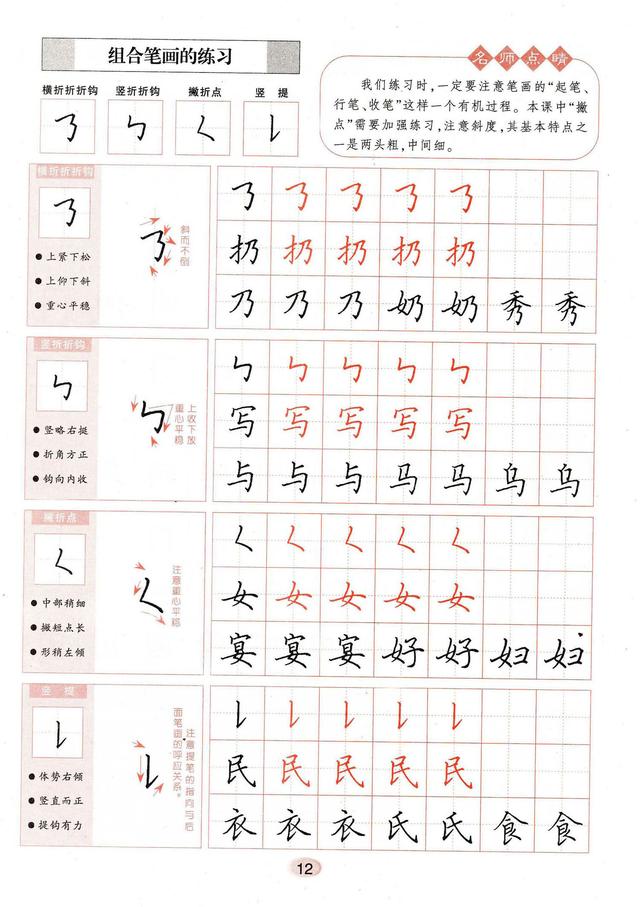 组合笔画的练习
横折折折钩 竖折折钩 撇折点 竖 提
㇡ ㇉ ㇛ ㇙
名师点睛
我们练习时，一定要注意笔画的“起笔、
行笔、收笔”这样一个有机过程。本课中“撇
点”需要加强练习，注意斜度，其基本特点之
一是两头粗，中间细。
横折折折钩
㇡
上紧下松
上仰下斜
重心平稳
㇡
斜而不倒
㇡ ㇡ ㇡ ㇡ ㇡
扔 扔 扔 扔 扔
乃 乃 乃 奶 奶 秀 秀
竖折折钩
㇉
竖略右挺
折角方正
钩向内收
㇉
上收下放
重心平稳
㇉ ㇉ ㇉ ㇉ ㇉
写 写 写 写 写
与 与 与 马 马 乌 乌
撇折点
㇛
中部稍细
撇短点长
形稍左倾
㇛
注意重心平稳
㇛ ㇛ ㇛ ㇛ ㇛
女 女 女 女 女
宴 宴 宴 好 好 妇 妇
竖 提
㇙
体势右倾
竖直而正
提钩有力
㇙
注意提笔的指向与后
面笔画的呼应关系。
㇙ ㇙ ㇙ ㇙ ㇙
民 民 民 民 民
衣 衣 衣 氏 氏 食 食
12